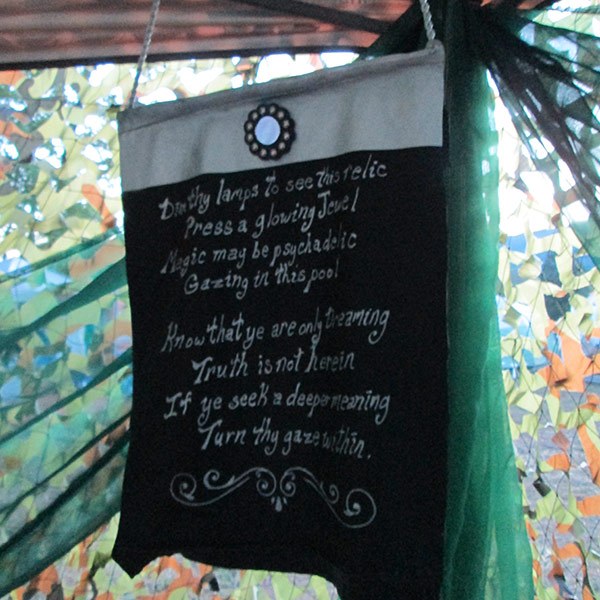 Dim thy lamps to see this relic
Press a glowing Jewel
Magic may be psychadelic
Gazing in this pool
Know that ye are only Dreaming
Truth is not herein
If ye seek a deeper meaning
Turn thy gaze within.